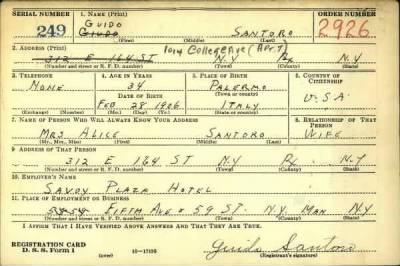 SERIAL NUMBER 1. NAME (Print) ORDER NUMBER
GUIDO
249 GUIDO SANTORO 2926
(First) (Middle) (Last)
2. ADDRESS (Print) 1014 College Ave (Apt. 9)
312 E 164 ST N.Y Bx N.Y
(Number and street or R. F. D. number) (Town) (County) (State)
3. TELEPHONE 4. AGE IN YEARS 5. PLACE OF BIRTH 6. COUNTRY OF CITIZENSHIP
NONE 34 PALERMO
DATE OF BIRTH (Town or county) U.S.A
FEB 28 1906 ITALY
(Exchange) (Number) (Mo.) (Day) (Yr.) (State or country)
7. NAME OF PERSON WHO WILL ALWAYS KNOW YOUR ADDRESS 8. RELATIONSHIP OF THAT PERSON
MRS ALICE SANTORO WIFE
(Mr., Mrs., Miss) (First) (Middle) (Last)
9. ADDRESS OF THAT PERSON
312 E 164 ST N.Y Bx. N.Y
(Number and street or R. F. D. number) (Town) (County) (State)
10. EMPLOYER'S NAME
SAVOY PLAZA HOTEL
11. PLACE OF EMPLOYMENT OR BUSINESS
FIFTH AVE & 59 ST. N.Y MAN N.Y
(Number and street or R. F. D. number) (Town) (County) (State)
I AFFIRM THAT I HAVE VERIFIED ABOVE ANSWERS AND THAT THEY ARE TRUE.
REGISTRATION CARD
D. S. S. Form 1 (over) 16—17105 Guido Santoro
(Registrant's signature)